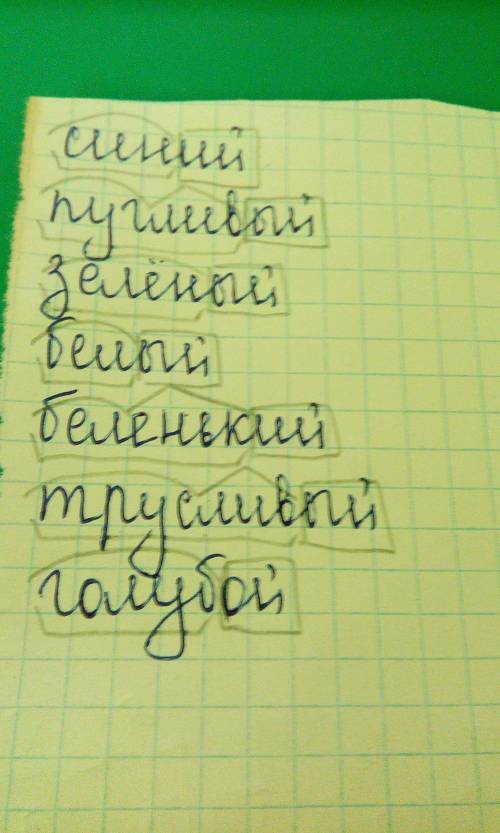 синий
пугливый
зелёный
белый
беленький
трусливый
голубой